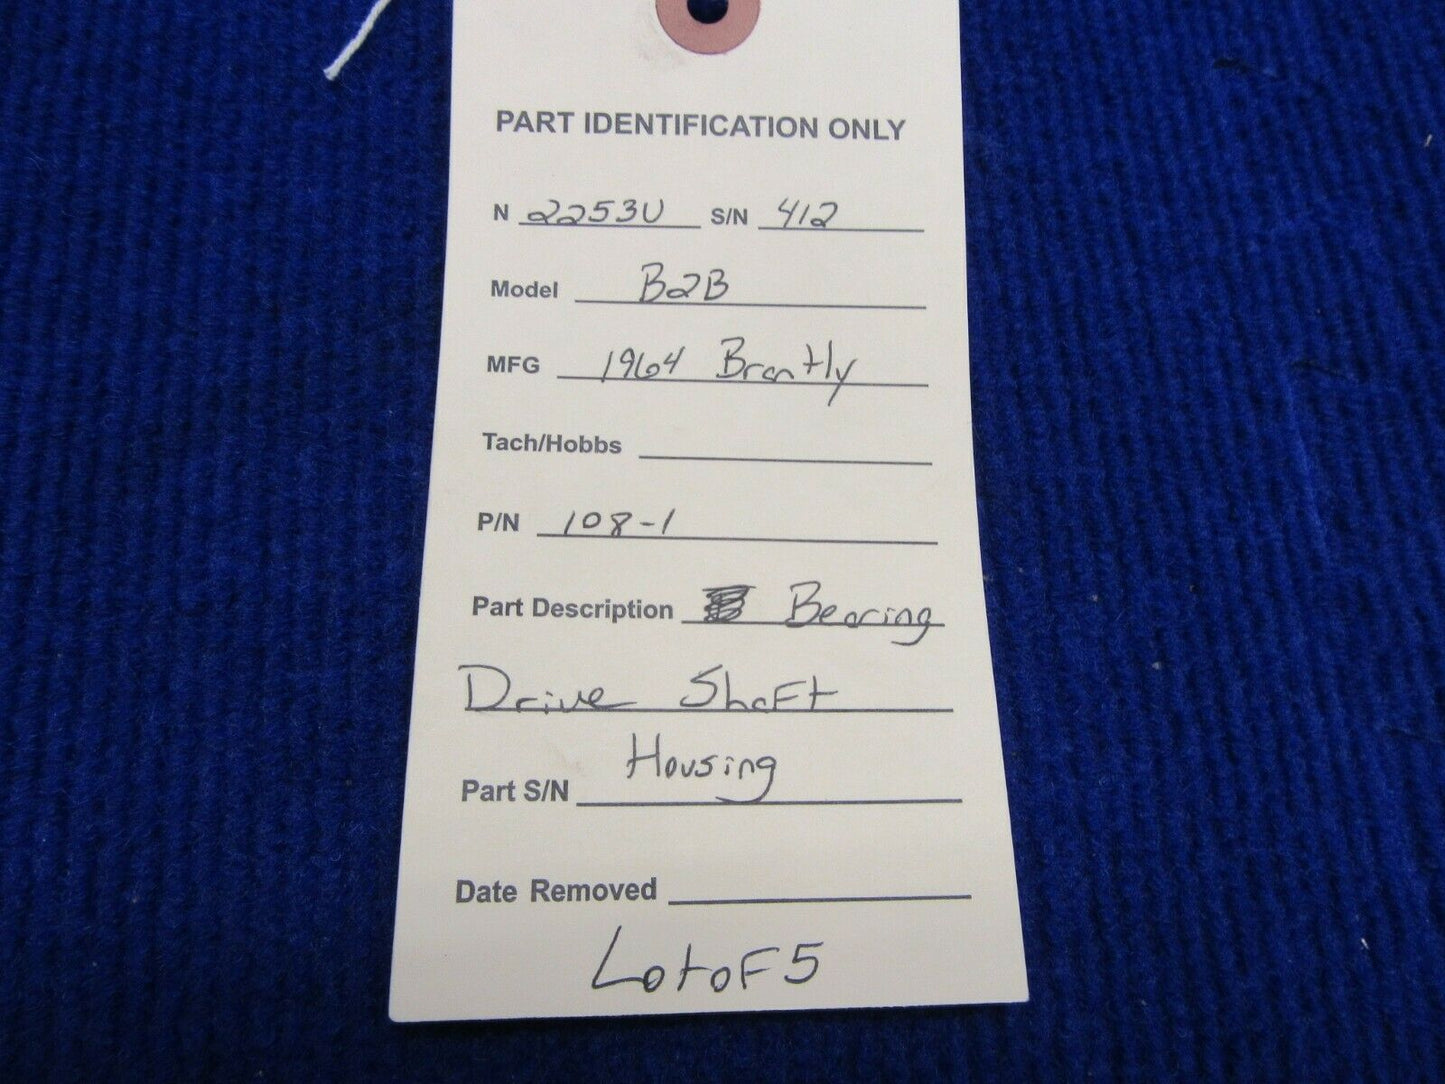 PART IDENTIFICATION ONLY
N 2253U S/N 412
Model B2B
MFG 1964 Brantly
Tach/Hobbs
P/N 108-1
Part Description Bearing
Drive Shaft
Housing
Part S/N
Date Removed
Lot of 5